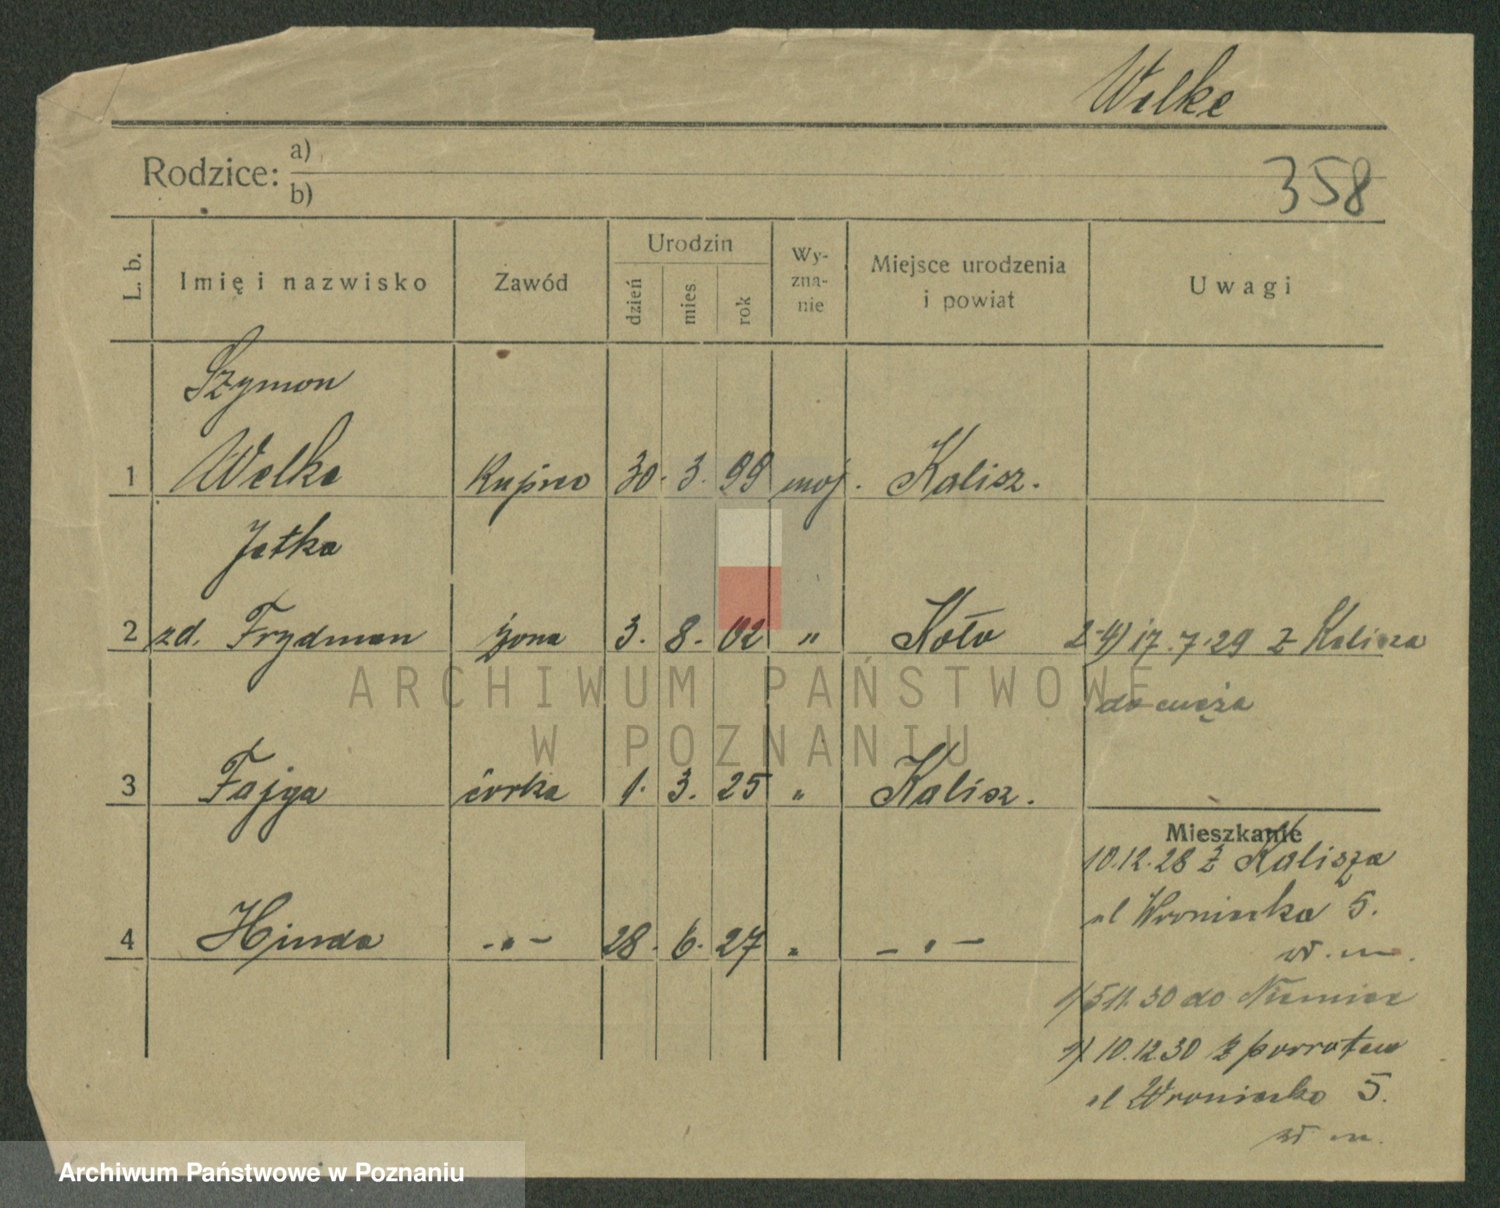 Welke
Rodzice: a)
b)
358
L. b. Imię i nazwisko Zawód Urodzin dzień mies rok Wy-zna-nie Miejsce urodzenia i powiat Uwagi
Szymon
1 Welke Kupiec 30. 3. 99 moj. Kalisz.
Jetka
2 zd. Frydman żona 3. 8. 02 " Koło 2-4) 17.7.29 z Kalisza
do męża
ARCHIWUM PAŃSTWOWE
W POZNANIU
3 Fajga córka 1. 3. 25 " Kalisz.
Mieszkanie
10.12.28 z Kalisza
ul Wroniecka 5.
4 Hinda -"- 28. 6. 27 " -"-
w. m.
1) 5.11.30 do Niemiec
1) 10.12.30 z powrotem
ul Wroniecka 5.
w m.
Archiwum Państwowe w Poznaniu